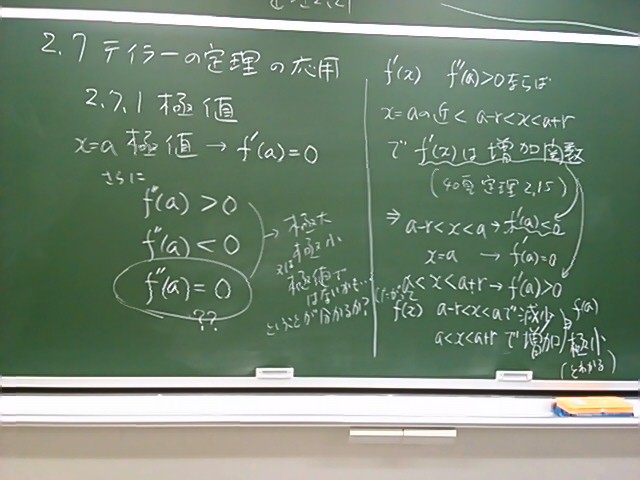 2.7 テイラーの定理の応用
2.7.1 極値
x=a 極値 → f'(a)=0
さらに
f''(a) > 0
f''(a) < 0
f''(a) = 0
??
→ 極大
又は 極小
極値で
はないかも…
ということが分かるか?
f'(x) f''(a)>0 ならば
x=aの近く a-r<x<a+r
で f'(x)は 増加関数
(40頁 定理 2.15)
⇒ a-r<x<a → f'(a)<0
x=a → f'(a)=0
a<x<a+r → f'(a)>0
したがって
f(x) a-r<x<a で減少
a<x<a+r で増加
f(a)
極小
(とわかる)